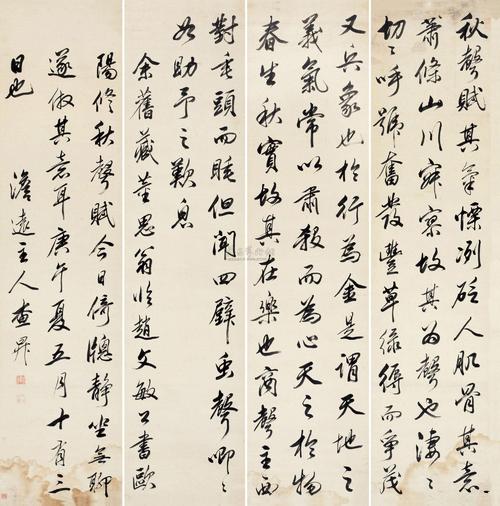 秋聲賦其氣慄冽砭人肌骨其意
蕭條山川寂寥故其為聲也淒〻
切〻呼號奮發豐草綠縟而爭茂
又兵象也於行為金是謂天地之
義氣常以肅殺而為心天之於物
春生秋實故其在樂也商聲主西
對垂頭而睡但聞四壁虫聲唧〻
如助予之歎息
余舊藏董思翁臨趙文敏公書歐
陽修秋聲賦今日倚牕靜坐無聊
遂倣其意耳庚午夏五月十有三
日也
澹遠主人查昇